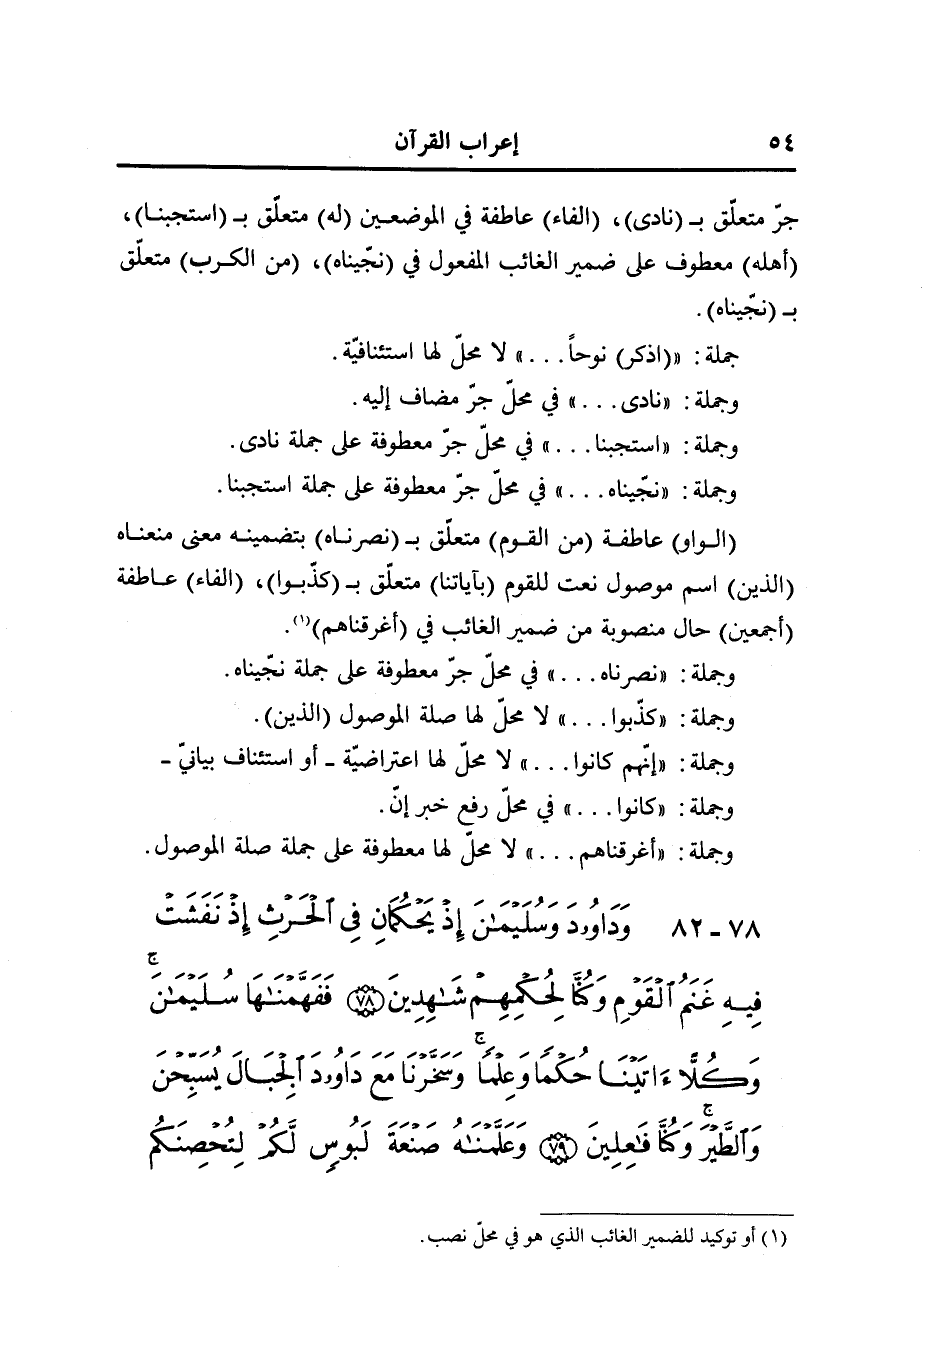 ٥٤ إعراب القرآن
جرّ متعلّق بـ (نادى)، (الفاء) عاطفة في الموضعين (له) متعلّق بـ (استجبنا)،
(أهله) معطوف على ضمير الغائب المفعول في (نجّيناه)، (من الكرب) متعلّق
بـ (نجّيناه).
جملة: «(اذكر) نوحاً...» لا محلّ لها استئنافيّة.
وجملة: «نادى...» في محلّ جرّ مضاف إليه.
وجملة: «استجبنا...» في محلّ جرّ معطوفة على جملة نادى.
وجملة: «نجّيناه...» في محلّ جرّ معطوفة على جملة استجبنا.
(الواو) عاطفة (من القوم) متعلّق بـ (نصرناه) بتضمينه معنى منعناه
(الذين) اسم موصول نعت للقوم (بآياتنا) متعلّق بـ (كذّبوا)، (الفاء) عاطفة
(أجمعين) حال منصوبة من ضمير الغائب في (أغرقناهم)(١).
وجملة: «نصرناه...» في محلّ جرّ معطوفة على جملة نجّيناه.
وجملة: «كذّبوا...» لا محلّ لها صلة الموصول (الذين).
وجملة: «إنّهم كانوا...» لا محلّ لها اعتراضيّة ـ أو استئناف بيانيّ ـ
وجملة: «كانوا...» في محلّ رفع خبر إنّ.
وجملة: «أغرقناهم...» لا محلّ لها معطوفة على جملة صلة الموصول.
٧٨ ـ ٨٢ وَدَاوُۥدَ وَسُلَيْمَٰنَ إِذْ يَحْكُمَانِ فِى ٱلْحَرْثِ إِذْ نَفَشَتْ
فِيهِ غَنَمُ ٱلْقَوْمِ وَكُنَّا لِحُكْمِهِمْ شَٰهِدِينَ ﴿٧٨﴾ فَفَهَّمْنَٰهَا سُلَيْمَٰنَۚ
وَكُلًّا ءَاتَيْنَا حُكْمًا وَعِلْمًاۚ وَسَخَّرْنَا مَعَ دَاوُۥدَ ٱلْجِبَالَ يُسَبِّحْنَ
وَٱلطَّيْرَۚ وَكُنَّا فَٰعِلِينَ ﴿٧٩﴾ وَعَلَّمْنَٰهُ صَنْعَةَ لَبُوسٍ لَّكُمْ لِتُحْصِنَكُم
(١) أو توكيد للضمير الغائب الذي هو في محلّ نصب.